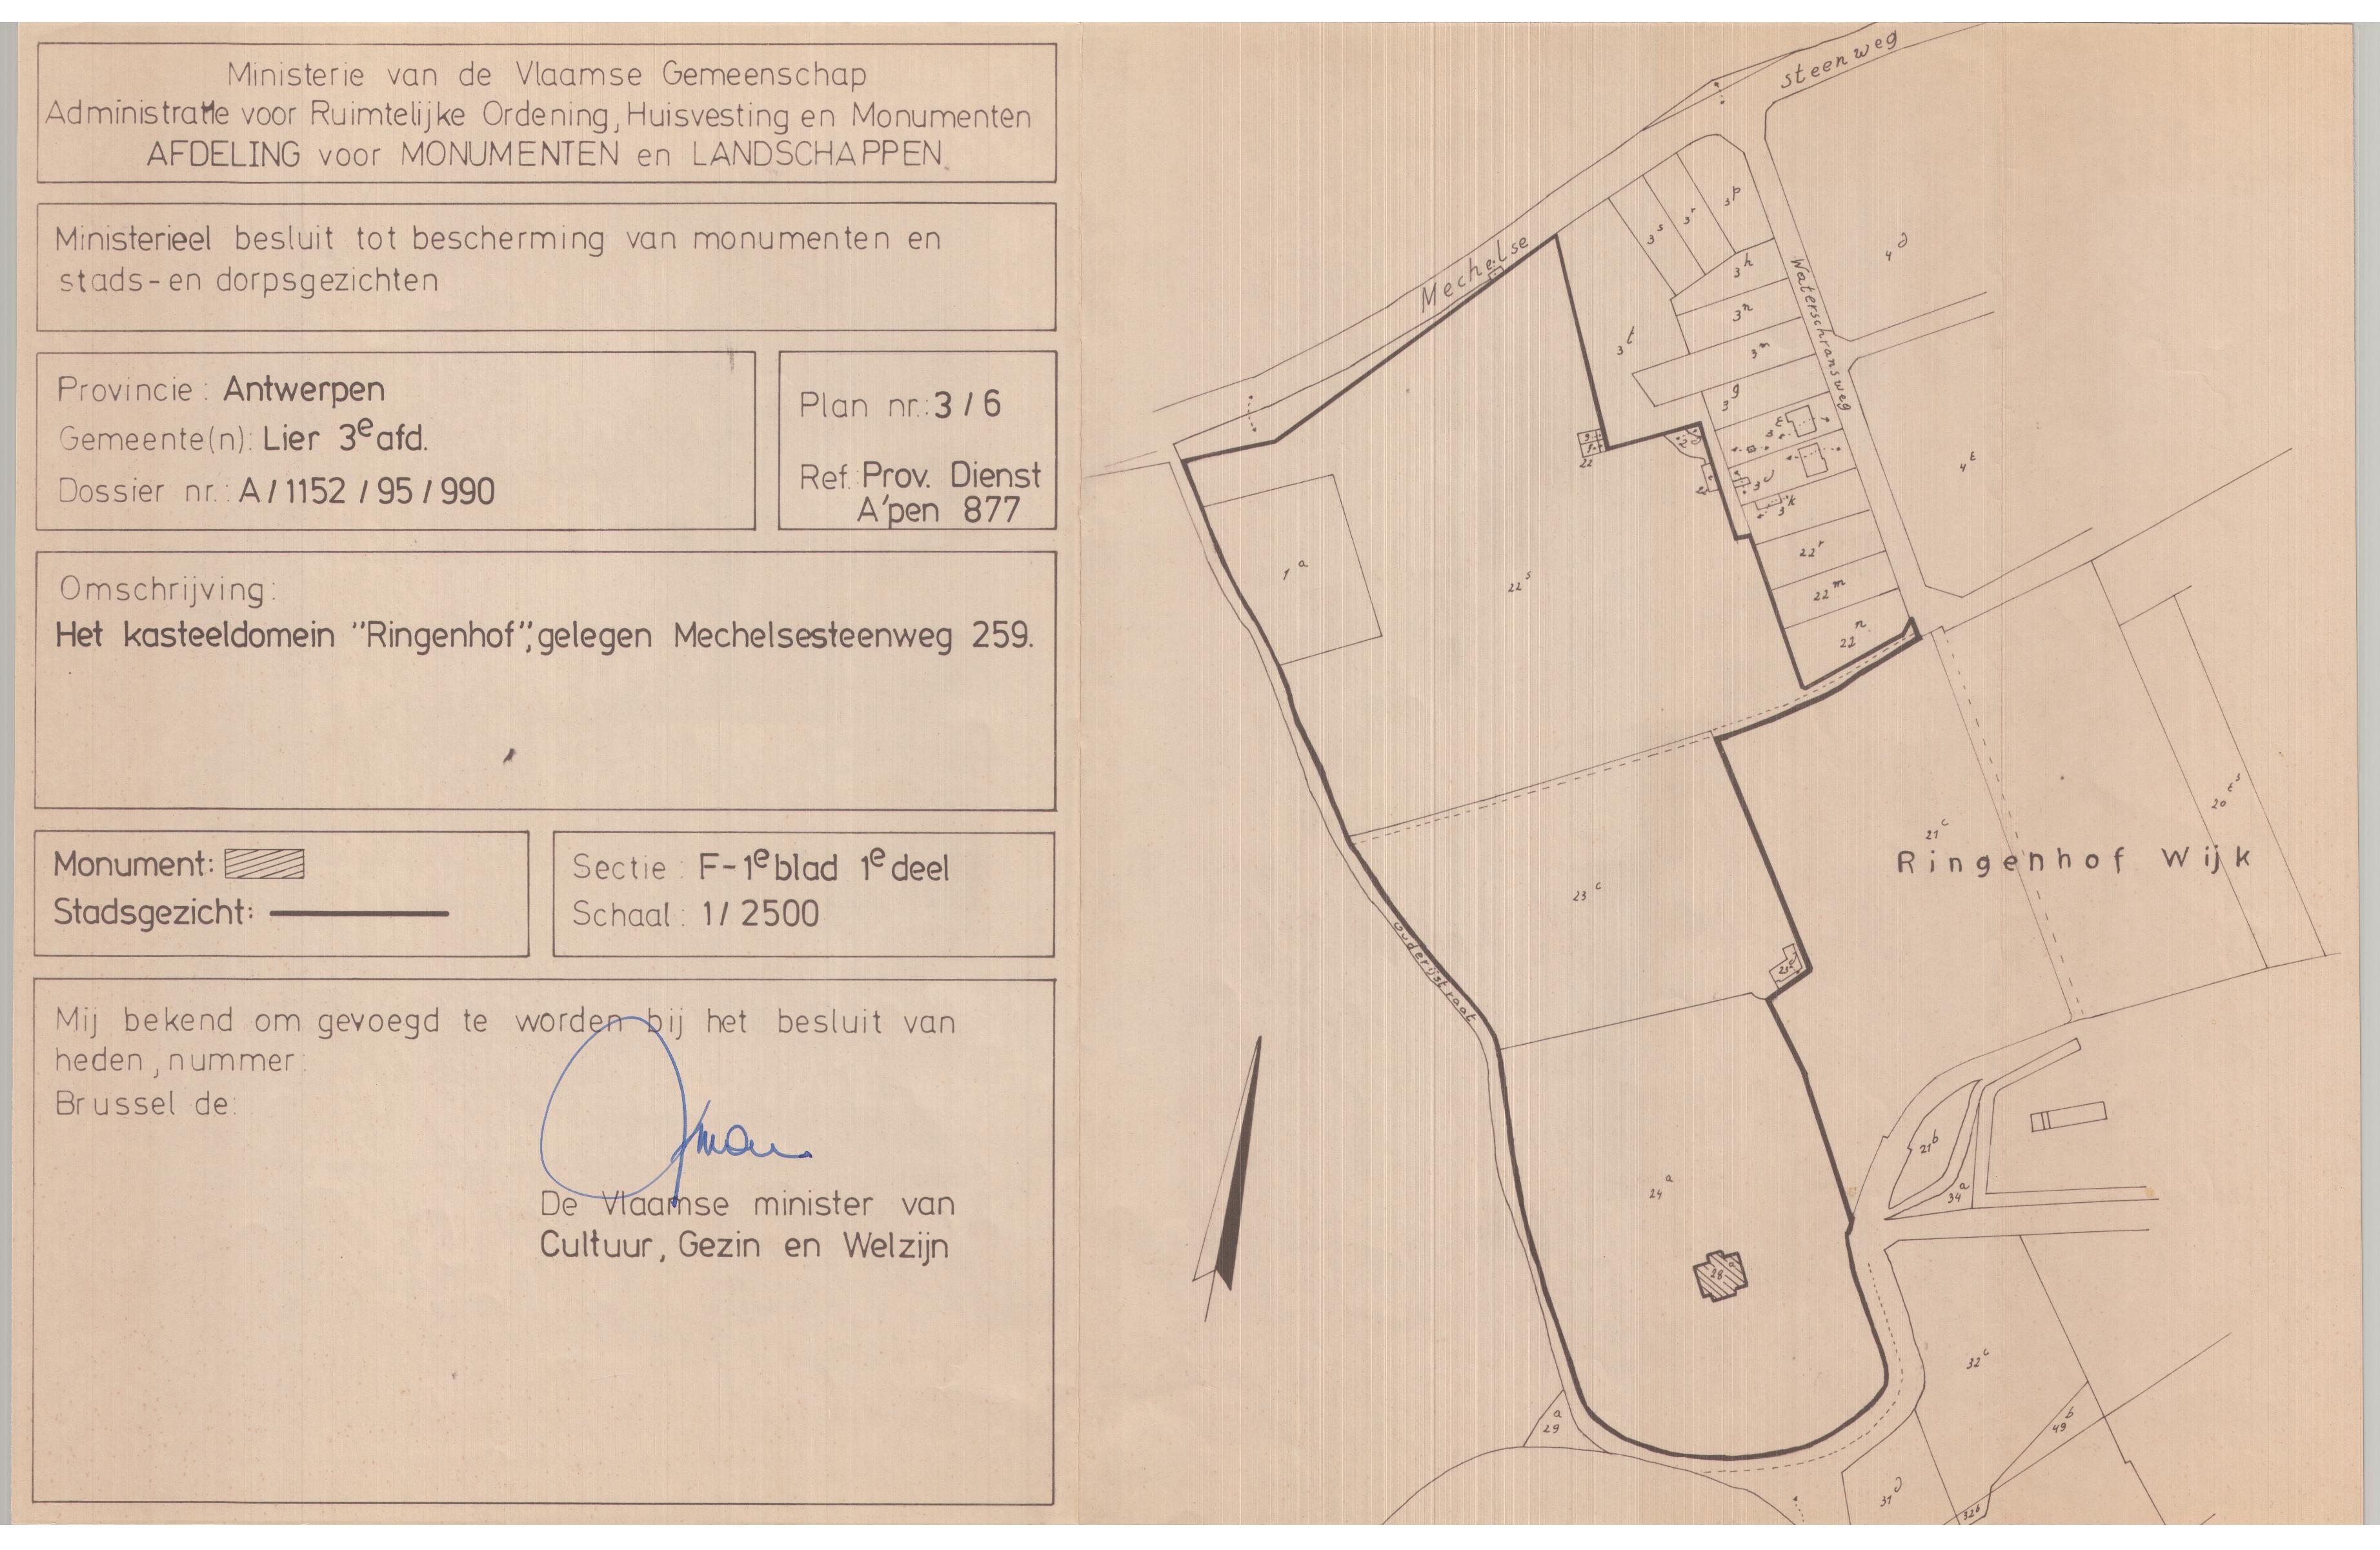 Ministerie van de Vlaamse Gemeenschap
Administratie voor Ruimtelijke Ordening, Huisvesting en Monumenten
AFDELING voor MONUMENTEN en LANDSCHAPPEN
Ministerieel besluit tot bescherming van monumenten en
stads-en dorpsgezichten
Provincie: Antwerpen
Gemeente(n): Lier 3e afd.
Dossier nr.: A/1152/95/990
Plan nr.: 3/6
Ref. Prov. Dienst
A'pen 877
Omschrijving:
Het kasteeldomein "Ringenhof", gelegen Mechelsesteenweg 259.
Monument:
Stadsgezicht:
Sectie: F-1e blad 1e deel
Schaal: 1/2500
Mij bekend om gevoegd te worden bij het besluit van
heden, nummer:
Brussel de:
De Vlaamse minister van
Cultuur, Gezin en Welzijn
Mechelse steenweg
Waterschransweg
3s
3r
3p
4d
3h
3n
3t
3m
3g
4E
3k
1a
22s
22r
22m
22n
21c
Ringenhof Wijk
23c
Ouderijstraat
24a
21b
34a
28a
32c
29a
49b
31d
32b